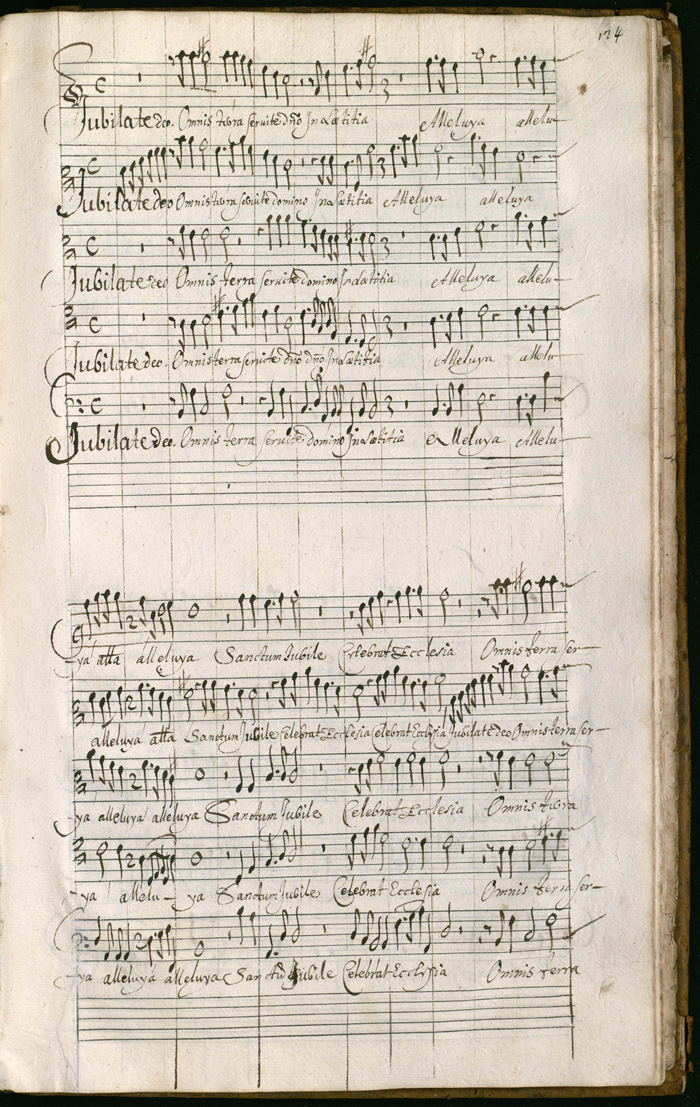 124
Jubilate deo. Omnis terra servite dño In Lætitia Alleluya allelu-
Jubilate deo Omnis terra servite domino In Lætitia Alleluya alleluya
Jubilate deo Omnis terra servite domino In Lætitia Alleluya allelu-
Jubilate deo. Omnis terra servite dño dño In Lætitia Alleluya allelu-
Jubilate deo. Omnis terra servite domino In Lætitia Alleluya Allelu-
-ya alla alleluya Sanctum Jubile Celebrat Ecclesia Omnis terra ser-
alleluya alla Sanctum Jubile Celebrat Ecclesia Celebrat Ecclesia Jubilate deo Omnis terra ser-
-ya alleluya alleluya Sanctum Jubile Celebrat Ecclesia Omnis terra
-ya allelu-ya Sanctum Jubile Celebrat Ecclesia Omnis terra ser-
-ya alleluya alleluya Sanctū Jubile Celebrat Ecclesia Omnis terra